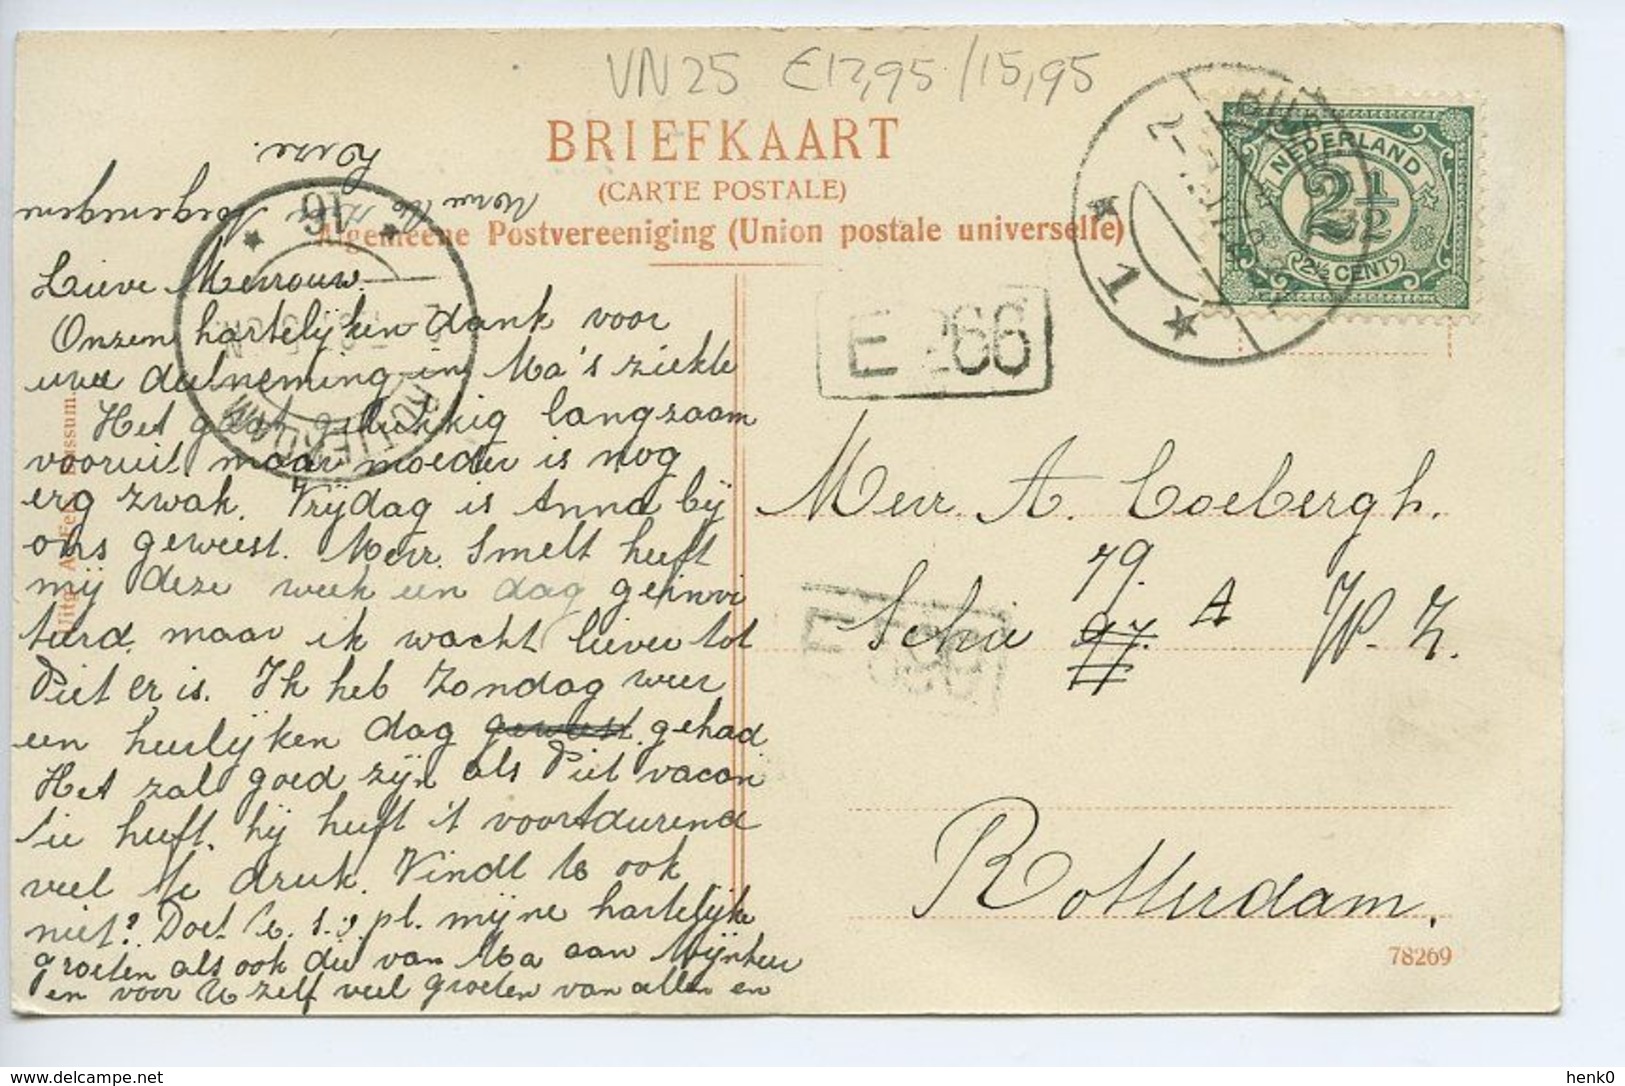 VN25 €12,95/15,95
BRIEFKAART
(CARTE POSTALE)
Algemeene Postvereeniging (Union postale universelle)
NEDERLAND
2½
2½ CENT
1
16
E 266
Lieve Mevrouw.
Onzen hartelijken dank voor
uwe deelneming in Ma's ziekte
Het gaat gelukkig langzaam
vooruit maar moeder is nog
erg zwak. Vrijdag is Anna bij
ons geweest. Mevr. Smelt heeft
mij deze week een dag geïnvi
teerd, maar ik wacht liever tot
Piet er is. Ik heb Zondag weer
een heerlijken dag geweest. gehad
Het zal goed zijn als Piet vacan
tie heeft, hij heeft 't voortdurend
veel te druk. Vindt U ook
niet? Doet U. s.v.pl. mijne hartelijke
groeten als ook die van Ma aan Mijnheer
en voor U zelf veel groeten van allen en
Toegenegene
Mevr. A. Coebergh.
Schie 97. 79. A W. Z.
Rotterdam.
78269
delcampe.net
henk0